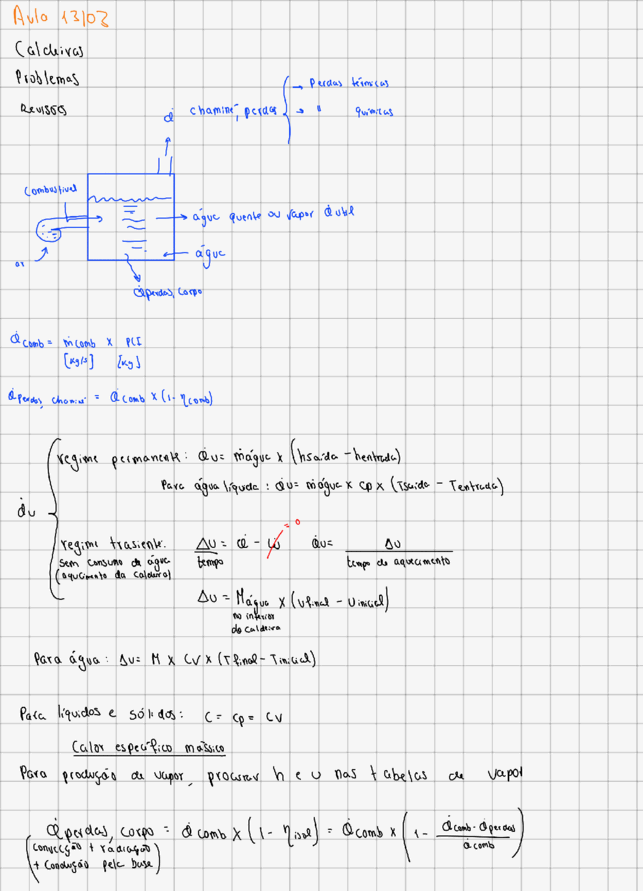 Aula 13/03
Caldeiras
Problemas
Revisões
chaminé, perdas
→ Perdas térmicas
→ " químicas
Q̇
Combustível
ar
água quente ou vapor Q̇útil
água
Q̇perdas, corpo
Q̇comb = ṁcomb x PCI
[kg/s] [kg]
Q̇perdas, chaminé = Q̇comb x (1 - ηcomb)
Q̇u
regime permanente: Q̇u = ṁágua x (hsaída - hentrada)
Para água líquida: Q̇u = ṁágua x cp x (Tsaída - Tentrada)
regime trasiente: ΔU/tempo = Q̇ - Ẇ = 0 Q̇u = ΔU/tempo de aquecimento
sem consumo de água
(aqucimento da caldeira)
ΔU = Mágua x (ufinal - uinicial)
no interior
da caldeira
Para água: ΔU = M x cv x (Tfinal - Tinicial)
Para líquidos e sólidos: c = cp = cv
Calor específico mássico
Para produção de vapor, procurar h e u nas tabelas de vapor
Q̇perdas, corpo = Q̇comb x (1 - ηisol) = Q̇comb x (1 - Q̇comb - Q̇perdas/Q̇comb)
(convecção + radiação
+ condução pela base)